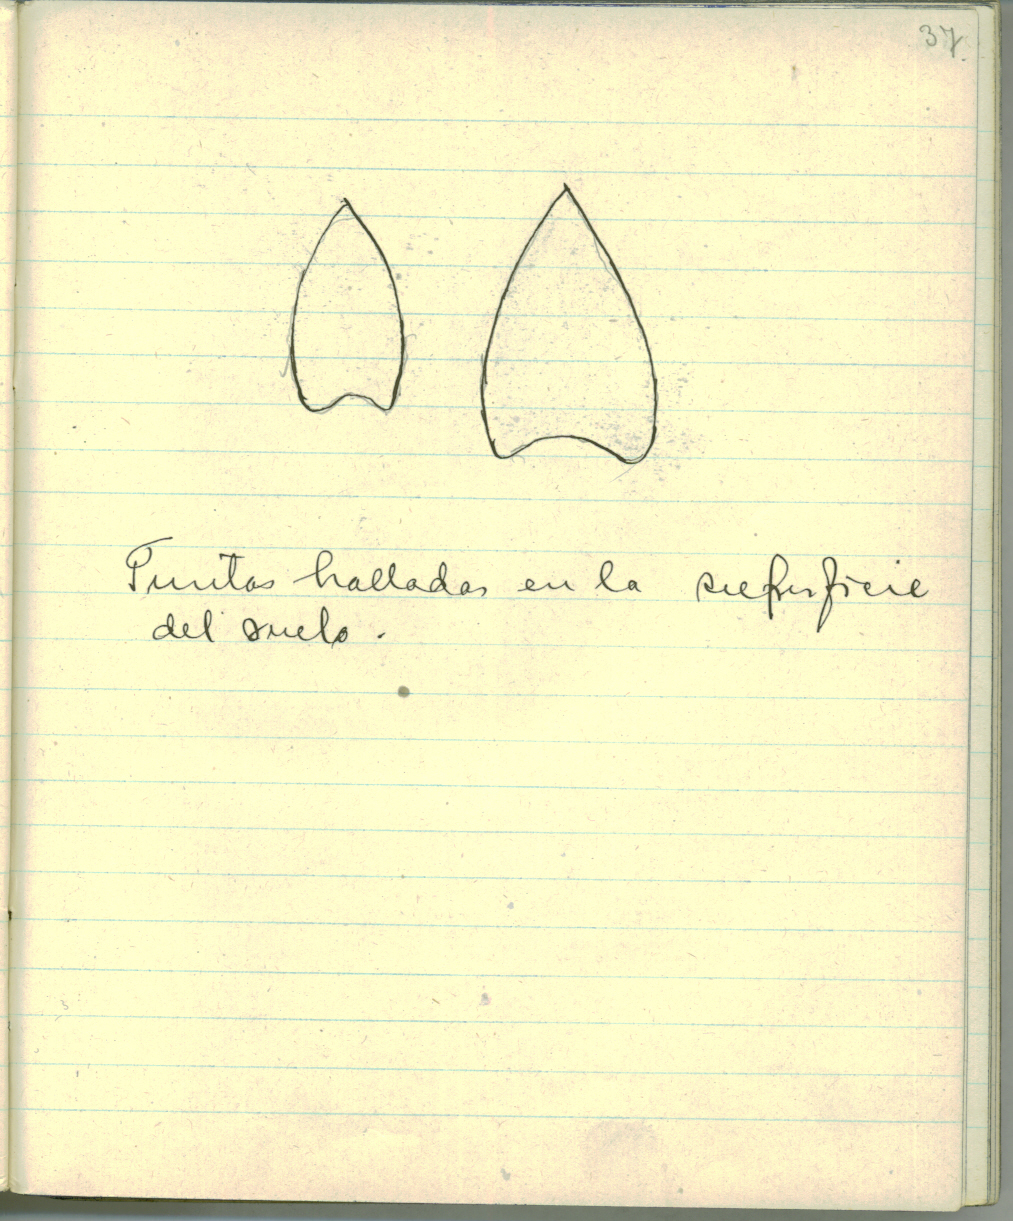 37
Puntas halladas en la superficie
del suelo.